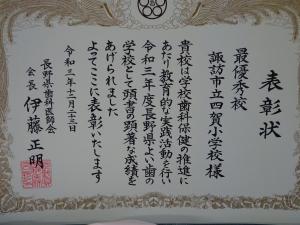 表彰状
最優秀校
諏訪市立四賀小学校様
貴校は学校歯科保健の推進に
あたり教育的な実践活動を行い
令和三年度長野県よい歯の
学校として頭書の顕著な成績を
あげられました
よってここに表彰いたします
令和三年十二月二十三日
長野県歯科医師会
会長 伊藤正明